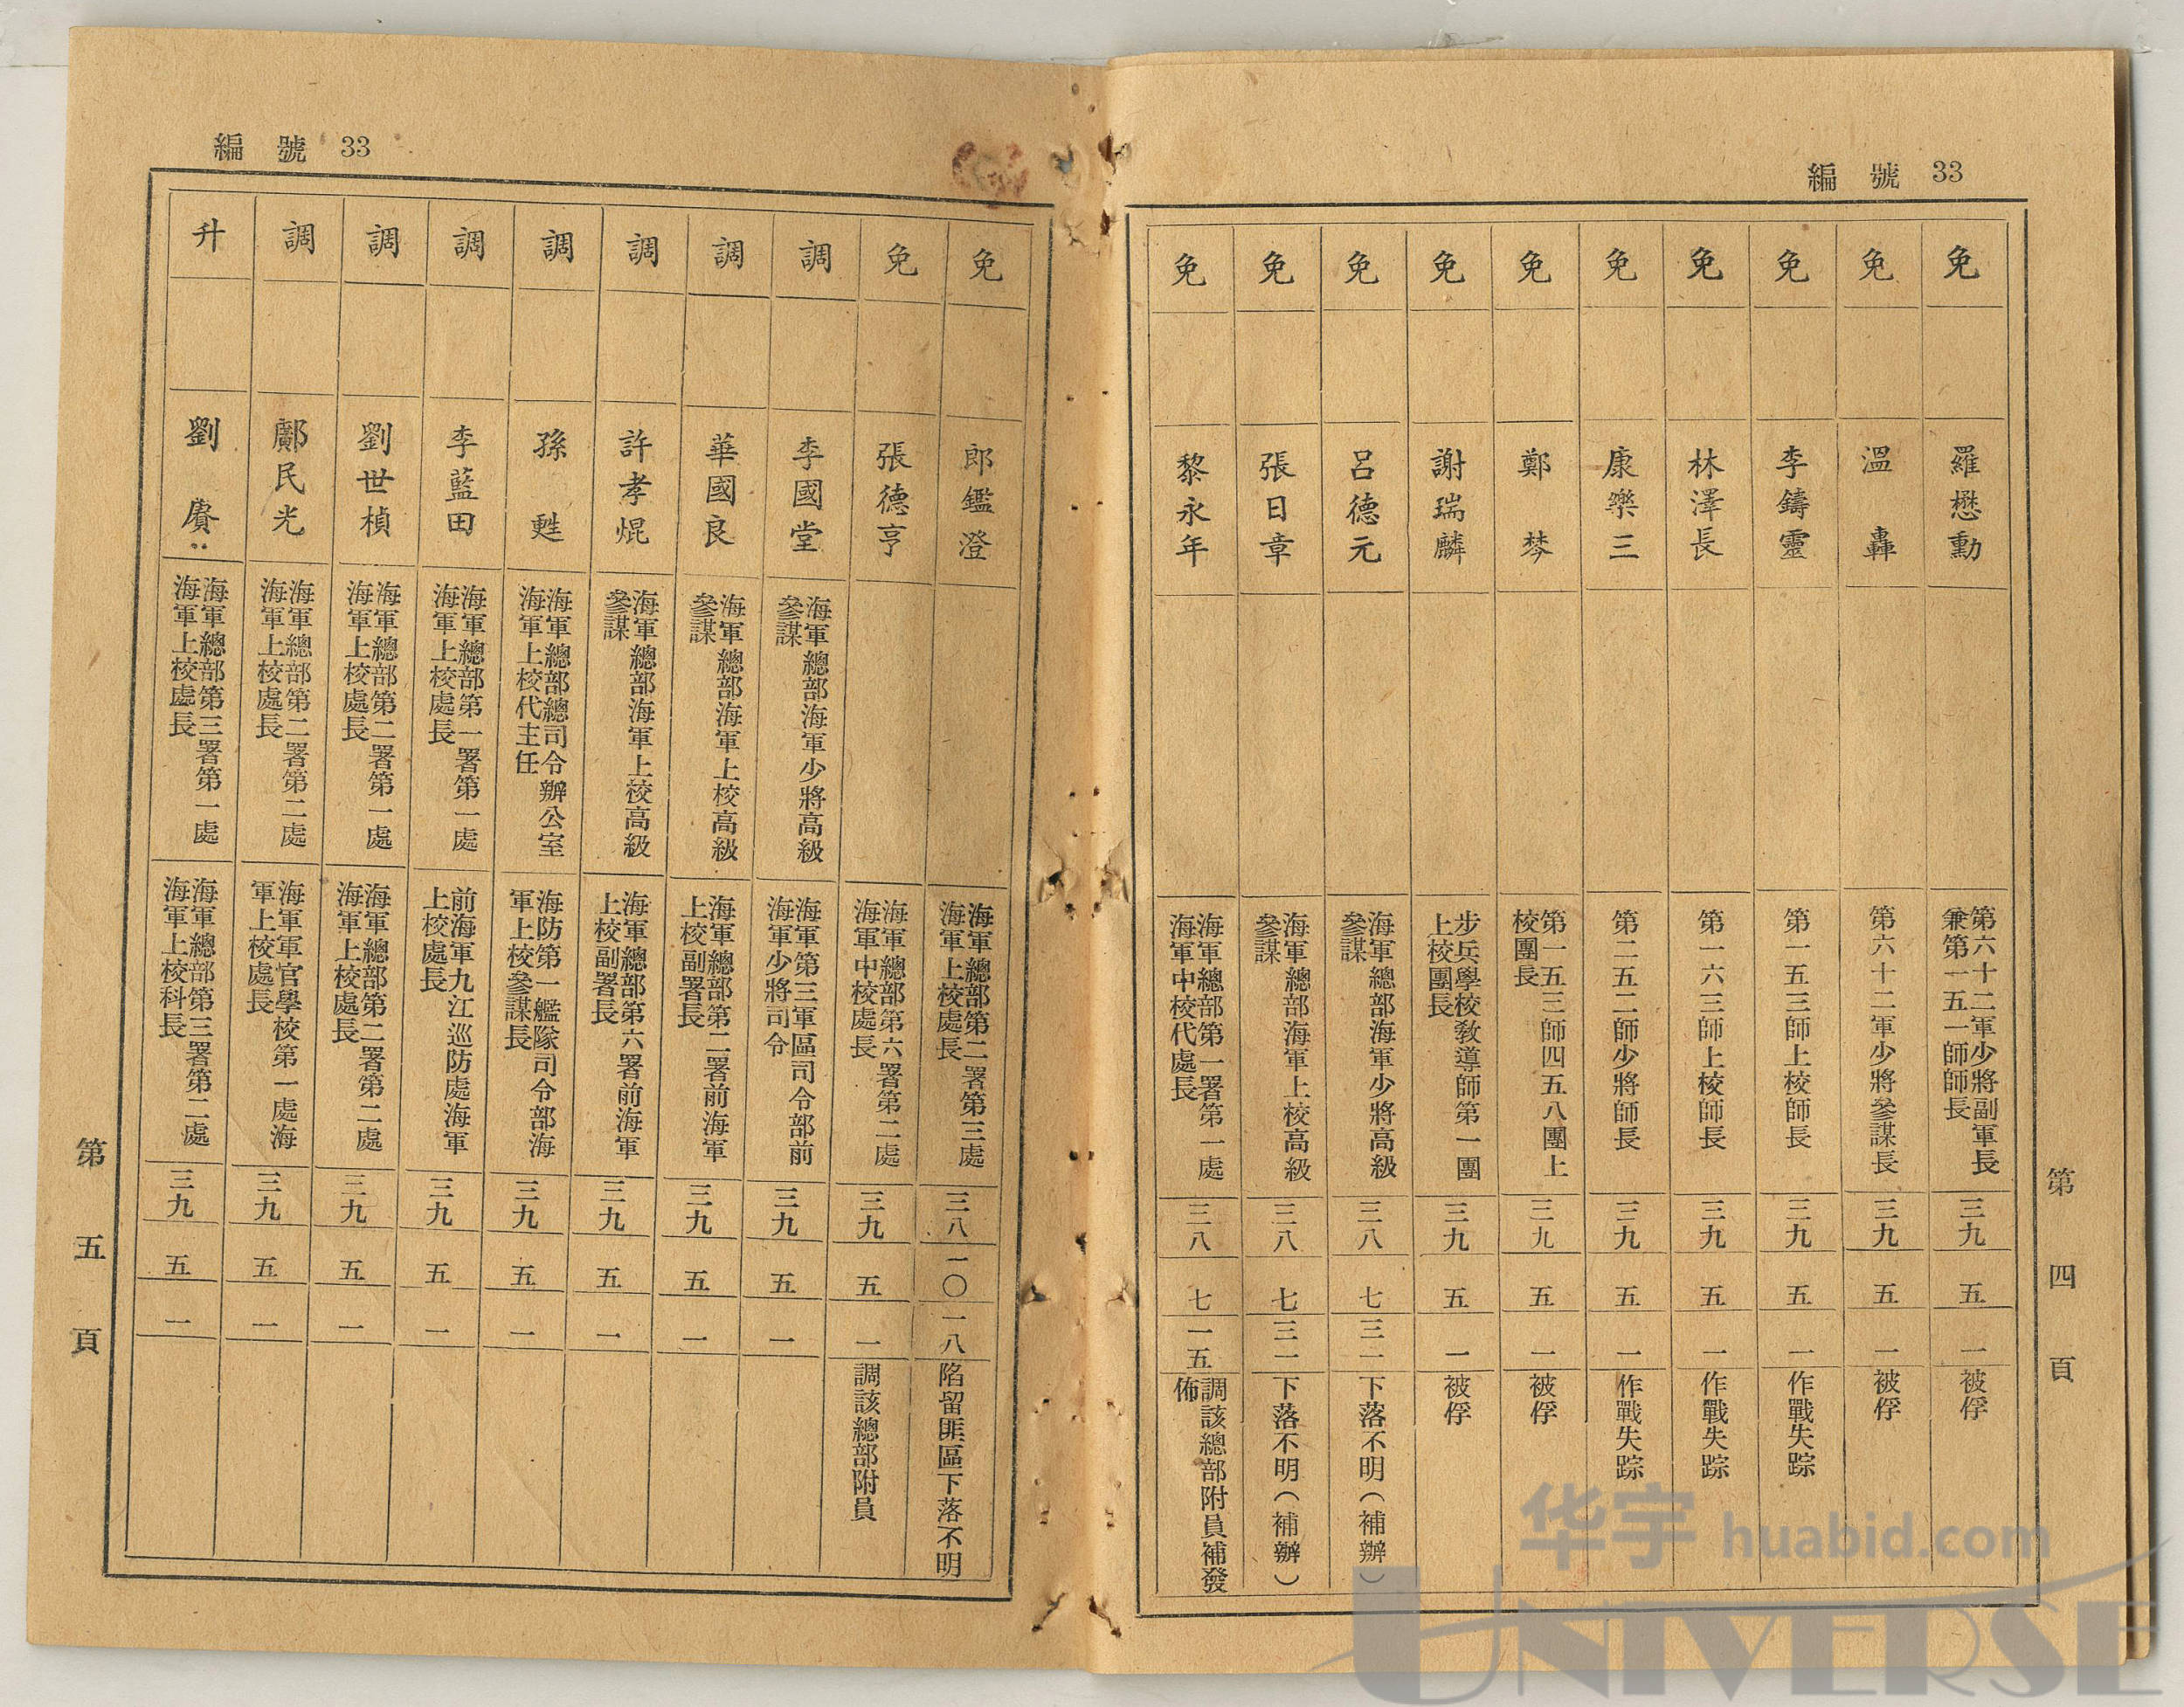 編號 33
第四頁
免 羅懋勳 第六十二軍少將副軍長兼第一五一師師長 三九 五 一 被俘
免 溫轟 第六十二軍少將參謀長 三九 五 一 被俘
免 李鑄靈 第一五三師上校師長 三九 五 一 作戰失踪
免 林澤長 第一六三師上校師長 三九 五 一 作戰失踪
免 康樂三 第二五二師少將師長 三九 五 一 作戰失踪
免 鄭棽 第一五三師四五八團上校團長 三九 五 一 被俘
免 謝瑞麟 步兵學校敎導師第一團上校團長 三九 五 一 被俘
免 呂德元 海軍總部海軍少將高級參謀 三八 七 三一 下落不明(補辦)
免 張日章 海軍總部海軍上校高級參謀 三八 七 三一 下落不明(補辦)
免 黎永年 海軍總部第一署第一處海軍中校代處長 三八 七 一五 調該總部附員補發佈
編號 33
免 郎鑑澄 海軍總部第二署第三處海軍上校處長 三八 一〇 一八 陷留匪區下落不明
免 張德亨 海軍總部第六署第二處海軍中校處長 三九 五 一 調該總部附員
調 李國堂 海軍總部海軍少將高級參謀 海軍第三軍區司令部前海軍少將司令 三九 五 一
調 華國良 海軍總部海軍上校高級參謀 海軍總部第二署前海軍上校副署長 三九 五 一
調 許孝焜 海軍總部海軍上校高級參謀 海軍總部第六署前海軍上校副署長 三九 五 一
調 孫甦 海軍總部總司令辦公室海軍上校代主任 海防第一艦隊司令部海軍上校參謀長 三九 五 一
調 李藍田 海軍總部第一署第一處海軍上校處長 前海軍九江巡防處海軍上校處長 三九 五 一
調 劉世楨 海軍總部第二署第一處海軍上校處長 海軍總部第二署第二處海軍上校處長 三九 五 一
調 鄺民光 海軍總部第二署第二處海軍上校處長 海軍軍官學校第一處海軍上校處長 三九 五 一
升 劉賡 海軍總部第三署第一處海軍上校處長 海軍總部第三署第二處海軍上校科長 三九 五 一
第五頁
华宇 huabid.com
UNIVERSE